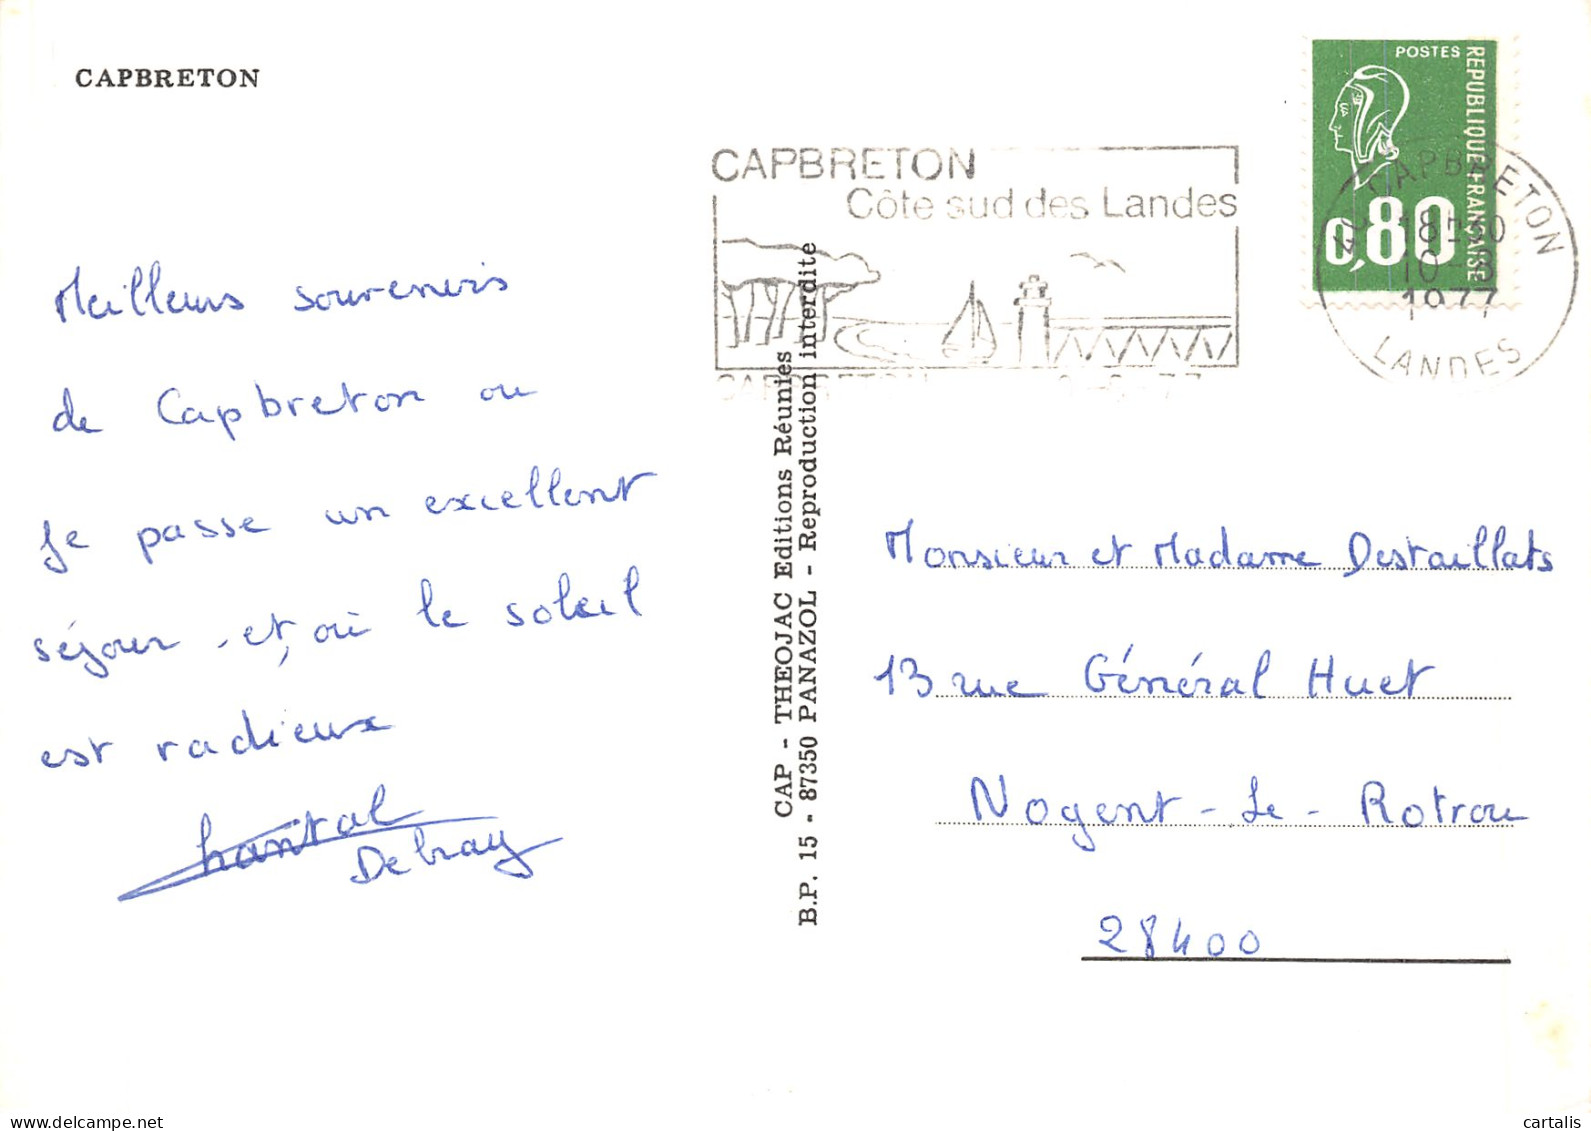 CAPBRETON
Meilleurs souvenirs
de Capbreton ou
je passe un excellent
séjour et, où le soleil
est radieux
Chantal
Debray
CAP - THEOJAC Editions Réunies
B.P. 15 - 87350 PANAZOL - Reproduction interdite
CAPBRETON
Côte sud des Landes
POSTES
REPUBLIQUE FRANÇAISE
0,80
CAPBRETON
18H30
10-8
1977
LANDES
Monsieur et Madame Destaillats
13 rue Général Huet
Nogent-Le-Rotrou
28400
delcampe.net
cartalis